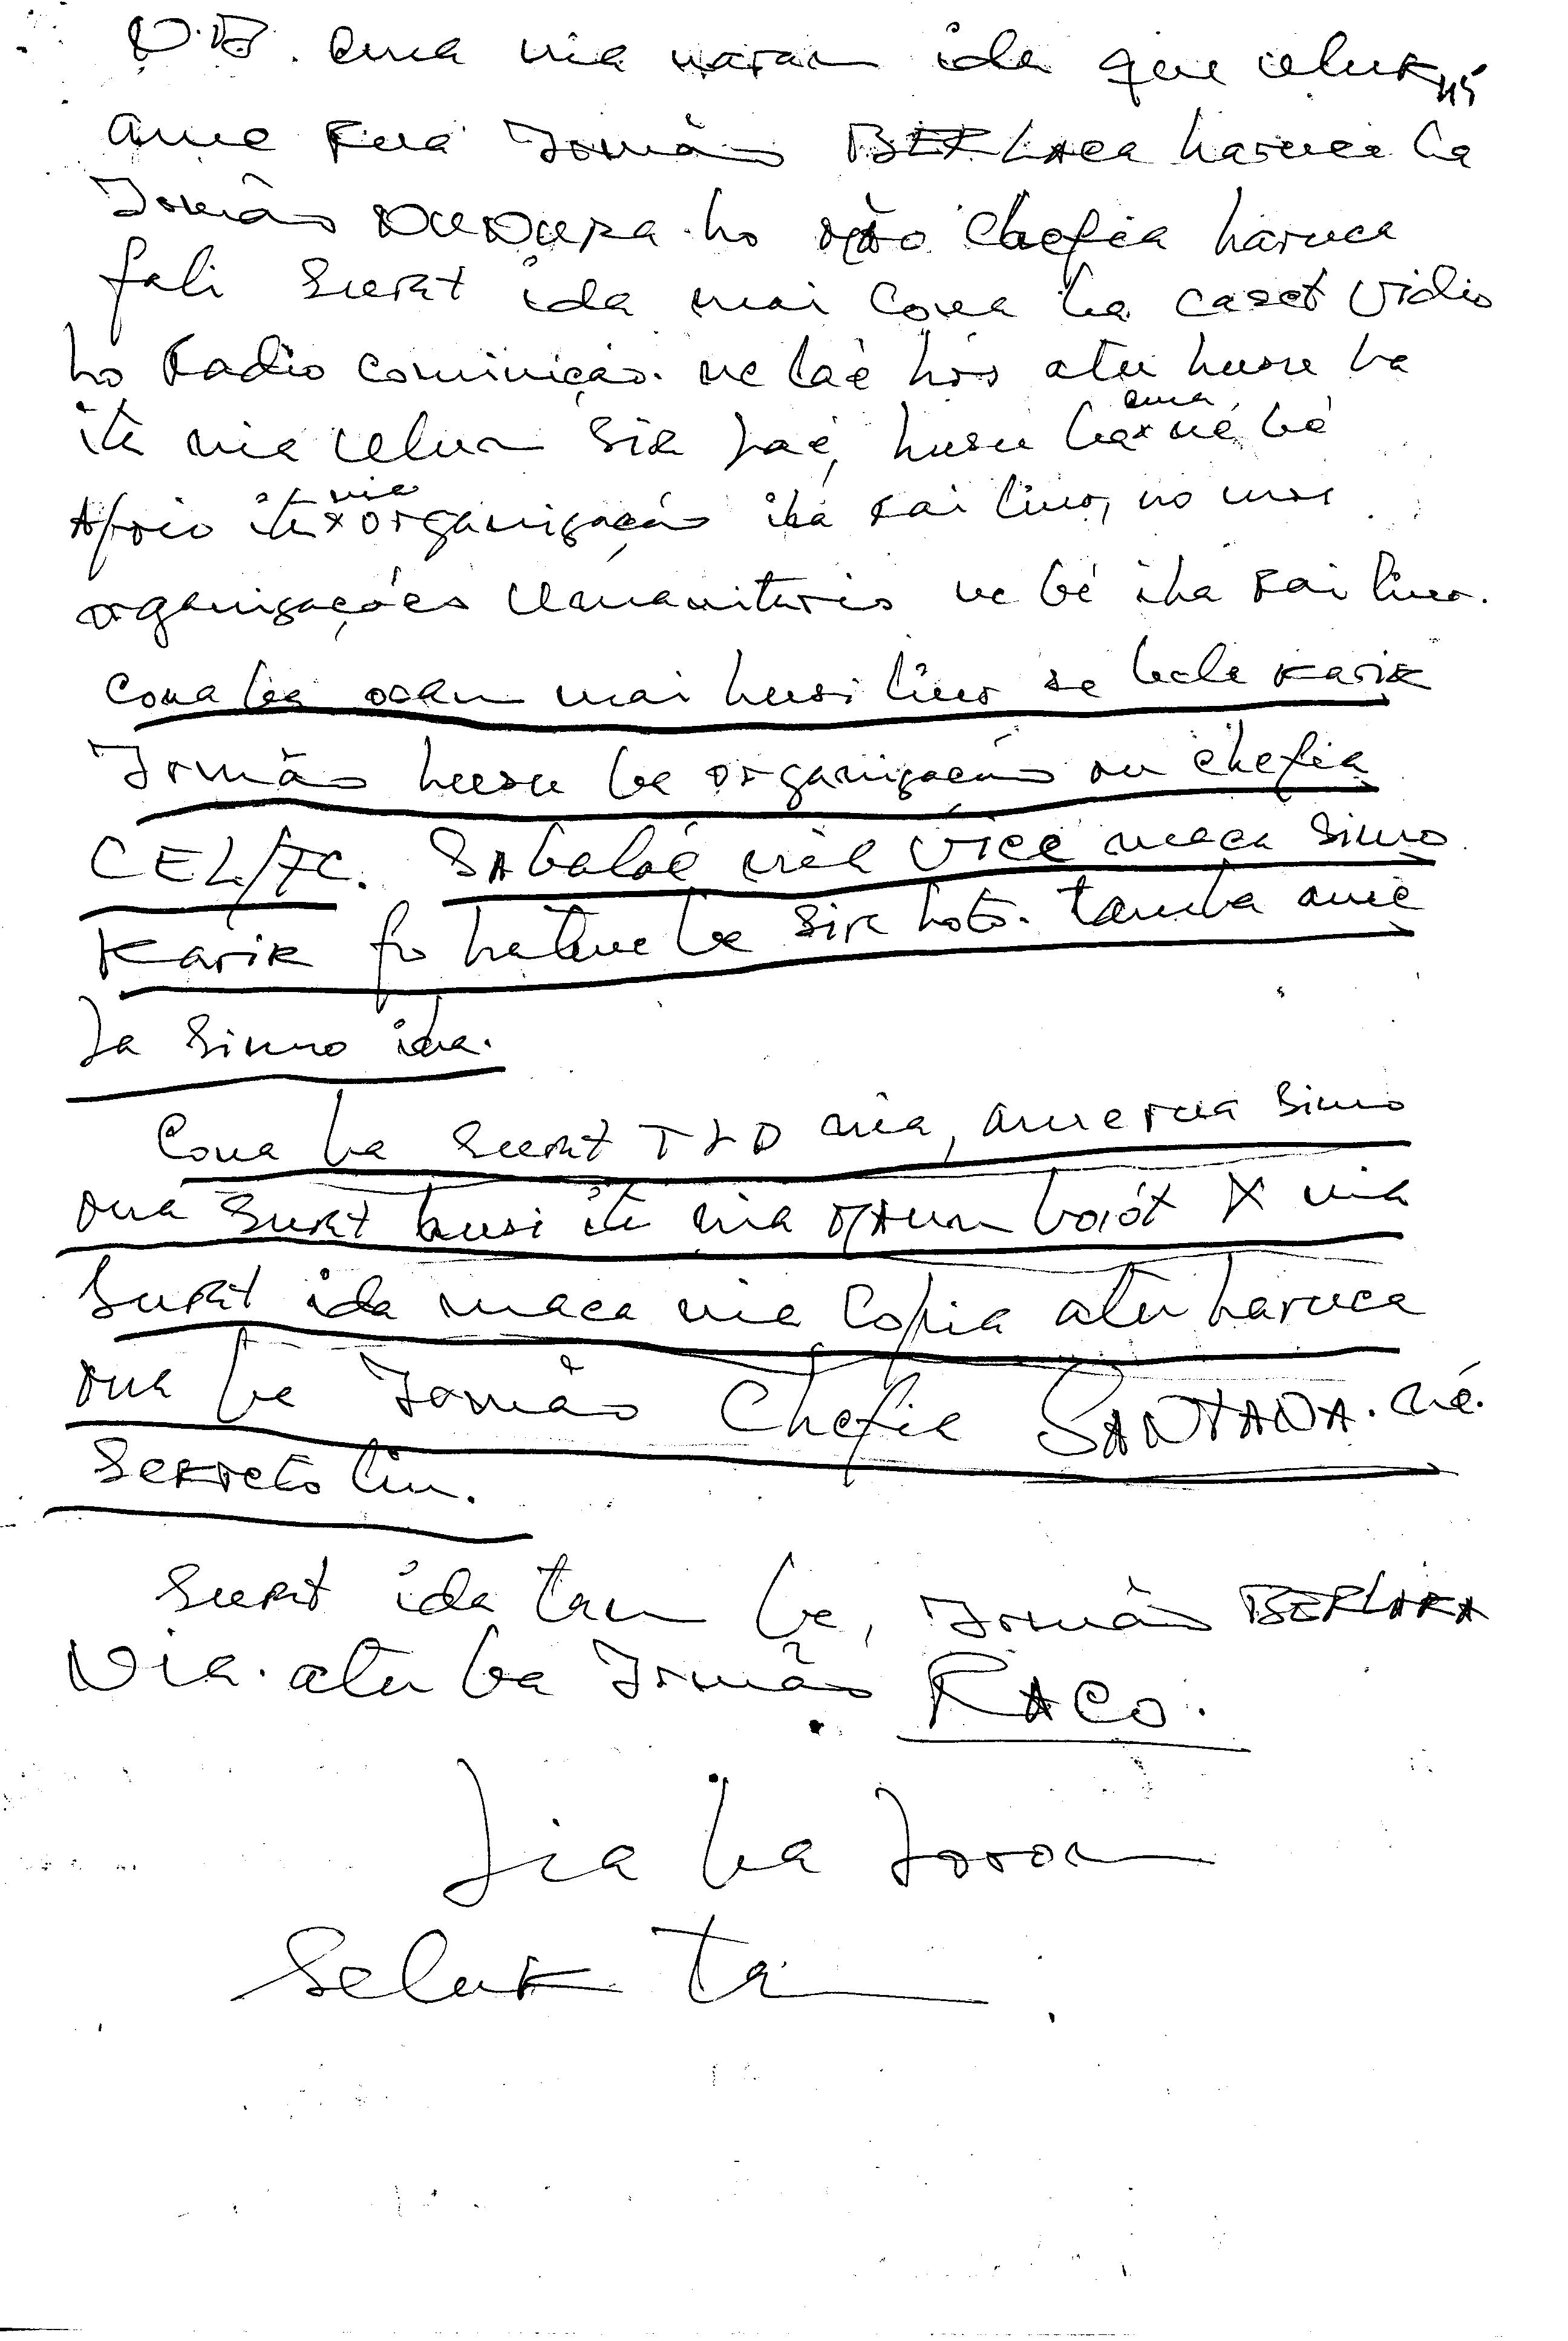 N.B. ema nia naran ida que uluk,
ame rua Irmão BERLACA haruca ba
Irmão DUDURA. ho não chefia haruca
fali surat ida mai cona ba caset vidio
ho Radio cominição. ne laé hós atu husu ba
ita nia ulun sia laé, husu ba ema né bé
Apoio ita nia organização iha rai liur, no mos
organizações Umanitaris ne bé iha rai liur.
Cona ba osan mai husi liur se bele karik
Irmão husu ba organização ou chefia
CEL/FC. Sabalaé nia Vice maca simo
Karik fo hatene ba sira hotó. tamba amé
la simo ida.
Cona ba surat TLD nia, ame rua simo
ona surat husi ita nia maun boót X nia
Surat ida maca nia Copia atu haruca
ona ba Irmão Chefia SANTANA. né.
Sekreto liu.
Surat ida tan ba, Irmão BERLAKA
Nia. atu ba Irmão RACO.
Lia ba Loron
Seluk tan